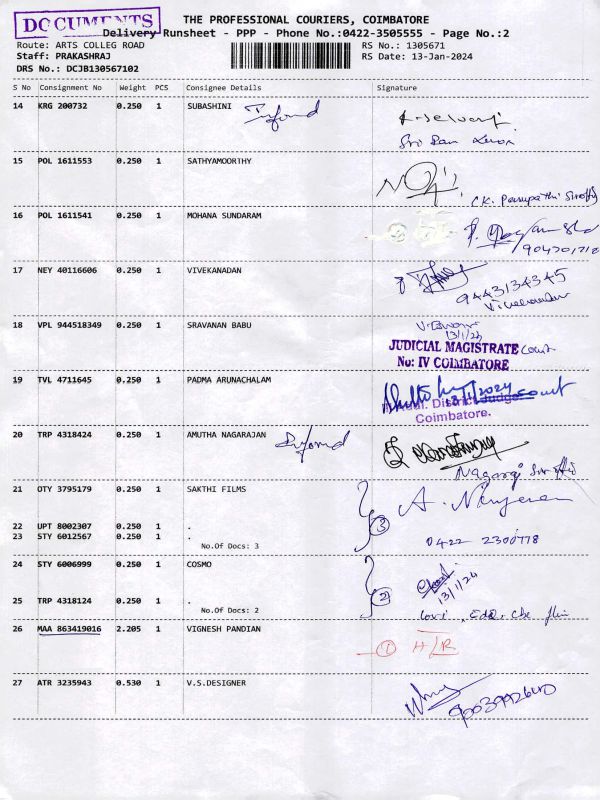 DOCUMENTS
THE PROFESSIONAL COURIERS, COIMBATORE
Delivery Runsheet - PPP - Phone No.:0422-3505555 - Page No.:2
Route: ARTS COLLEG ROAD
RS No.: 1305671
Staff: PRAKASHRAJ
RS Date: 13-Jan-2024
DRS No.: DCJB130567102
S No Consignment No Weight PCS Consignee Details Signature
14 KRG 200732 0.250 1 SUBASHINI
15 POL 1611553 0.250 1 SATHYAMOORTHY
16 POL 1611541 0.250 1 MOHANA SUNDARAM
17 NEY 40116606 0.250 1 VIVEKANADAN
9443134345
18 VPL 944518349 0.250 1 SRAVANAN BABU
13/1/24
JUDICIAL MAGISTRATE Court
No: IV COIMBATORE
19 TVL 4711645 0.250 1 PADMA ARUNACHALAM
court
Coimbatore.
20 TRP 4318424 0.250 1 AMUTHA NAGARAJAN
21 OTY 3795179 0.250 1 SAKTHI FILMS
22 UPT 8002307 0.250 1 .
23 STY 6012567 0.250 1 .
No.Of Docs: 3
3
0422 2300778
24 STY 6006999 0.250 1 COSMO
13/1/24
25 TRP 4318124 0.250 1 .
No.Of Docs: 2
2
26 MAA 863419016 2.205 1 VIGNESH PANDIAN
1 H/R
27 ATR 3235943 0.530 1 V.S.DESIGNER